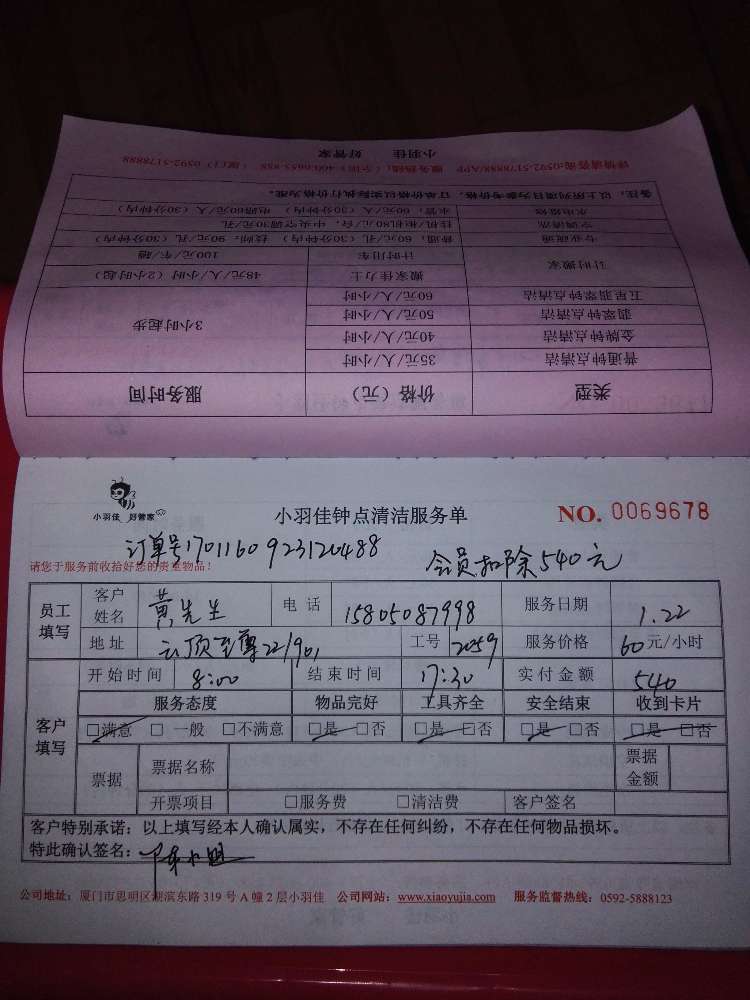 类型 价格（元） 服务时间
普通钟点清洁 35元/人/小时
金牌钟点清洁 40元/人/小时
3小时起步
翡翠钟点清洁 50元/人/小时
五星翡翠钟点清洁 60元/人/小时
计时搬家 搬家佳力士 48元/人/小时（2小时起）
计时用车 100元/车/趟
专业疏通 普通：60元/孔（30分钟内） 技师：90元/孔（30分钟内）
空调清洗 挂机/柜机80元/台，中央空调30元/孔
水电维修 水管：60元/人（30分钟内） 电路60元/人（30分钟内）
备注：以上所列项目为参考价格，订单价格以实际执行价格为准。
详情请咨询:0592-5178888/APP 服务热线：（全国）400-6655-858（厦门）0592-5178888
小羽佳 好管家
小羽佳 好管家 小羽佳钟点清洁服务单 NO. 0069678
订单号1701160923120488 会员扣除540元
请您于服务前收拾好您的贵重物品！
员工填写 客户姓名 黄先生 电话 15805087998 服务日期 1.22
地址 云顶至尊22/901 工号 2059 服务价格 60元/小时
客户填写 开始时间 8:00 结束时间 17:30 实付金额 540
服务态度 物品完好 工具齐全 安全结束 收到卡片
□满意 □一般 □不满意 □是 □否 □是 □否 □是 □否 □是 □否
票据 票据名称 票据金额
开票项目 □服务费 □清洁费 客户签名
客户特别承诺：以上填写经本人确认属实，不存在任何纠纷，不存在任何物品损坏。
特此确认签名：
公司地址：厦门市思明区湖滨东路319号A幢2层小羽佳 公司网站：www.xiaoyujia.com 服务监督热线：0592-5888123